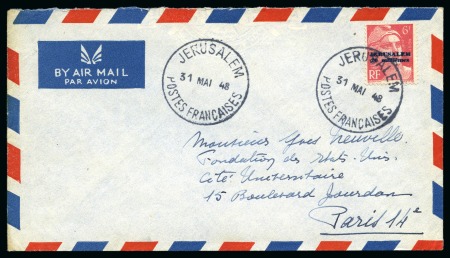 BY AIR MAIL
PAR AVION
JERUSALEM
31 MAI 48
POSTES FRANÇAISES
JERUSALEM
31 MAI 48
POSTES FRANÇAISES
6F
JERUSALEM
RF
Monsieur Yves
Fondation des États-Unis
Cité Universitaire
15 Boulevard Jourdan
Paris 14e